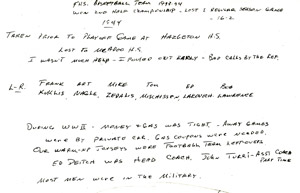 F.H.S. BASKETBALL TEAM 1943-44
WON 2ND HALF CHAMPIONSHIP - LOST 2 REGULAR SEASON GAMES
16-2
1944
TAKEN PRIOR TO PLAYING GAME AT HAZLETON H.S.
LOST TO H.S.
I WASN'T MUCH HELP - I FOULED OUT EARLY - BAD CALLS BY THE REF.
L-R. FRANK ART MIKE TOM ED BOB
NAGLE, LAWRENCE
DURING WW II - MONEY & GAS WAS TIGHT - AWAY GAMES
WERE BY PRIVATE CAR. GAS COUPONS WERE NEEDED.
OUR WARM-UP JERSEYS WERE FOOTBALL TEAM LEFTOVERS
ED DEITCH WAS HEAD COACH, JOHN TURRI - ASST COACH
PART TIME
MOST MEN WERE IN THE MILITARY.